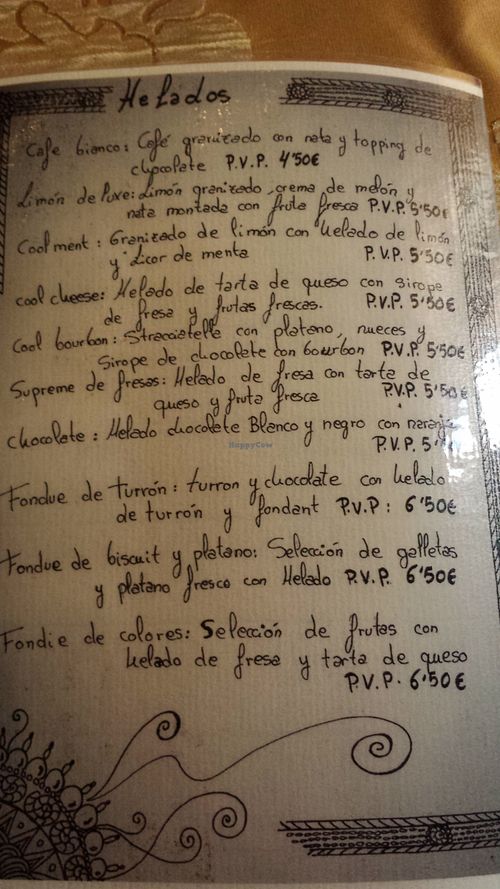 Helados
Cafe bianco: Café granizado con nata y topping de
chocolate P.V.P. 4'50€
Limón de luxe: Limón granizado, crema de melón y
nata montada con fruta fresca P.V.P. 5'50€
Cool ment: Granizado de limón con helado de limón
y licor de menta P.V.P. 5'50€
cool cheese: Helado de tarta de queso con sirope
de fresa y frutas frescas. P.V.P. 5'50€
Cool bourbon: Stracciatella con platano, nueces y
sirope de chocolate con bourbon P.V.P. 5'50€
Supreme de fresas: Helado de fresa con tarta de
queso y fruta fresca P.V.P. 5'50€
chocolate: Helado chocolate Blanco y negro con naranja
P.V.P. 5'
HappyCow
Fondue de Turrón: turron y chocolate con helado
de turrón y fondant P.V.P: 6'50€
Fondue de biscuit y platano: Selección de galletas
y platano fresco con Helado P.V.P. 6'50€
Fondie de colores: Selección de frutas con
helado de fresa y tarta de queso
P.V.P. 6'50€